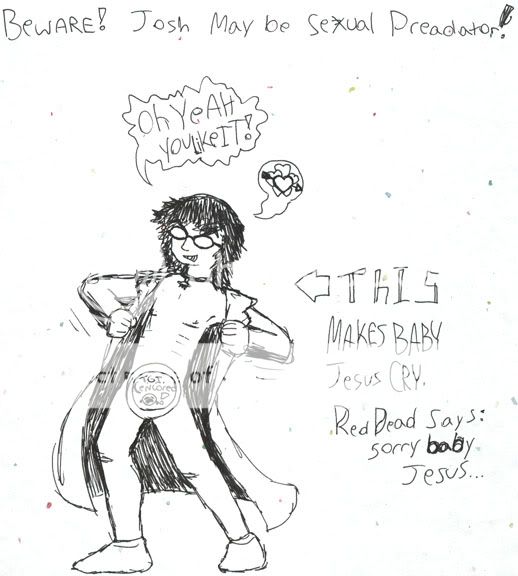 BEWARE! Josh May be Sexual Preadator!
Oh YeAH
YOULIKEIT!
THIS
MAKES BABY
Jesus CRY.
RedDead Says:
sorry baby
Jesus...
CENCORED